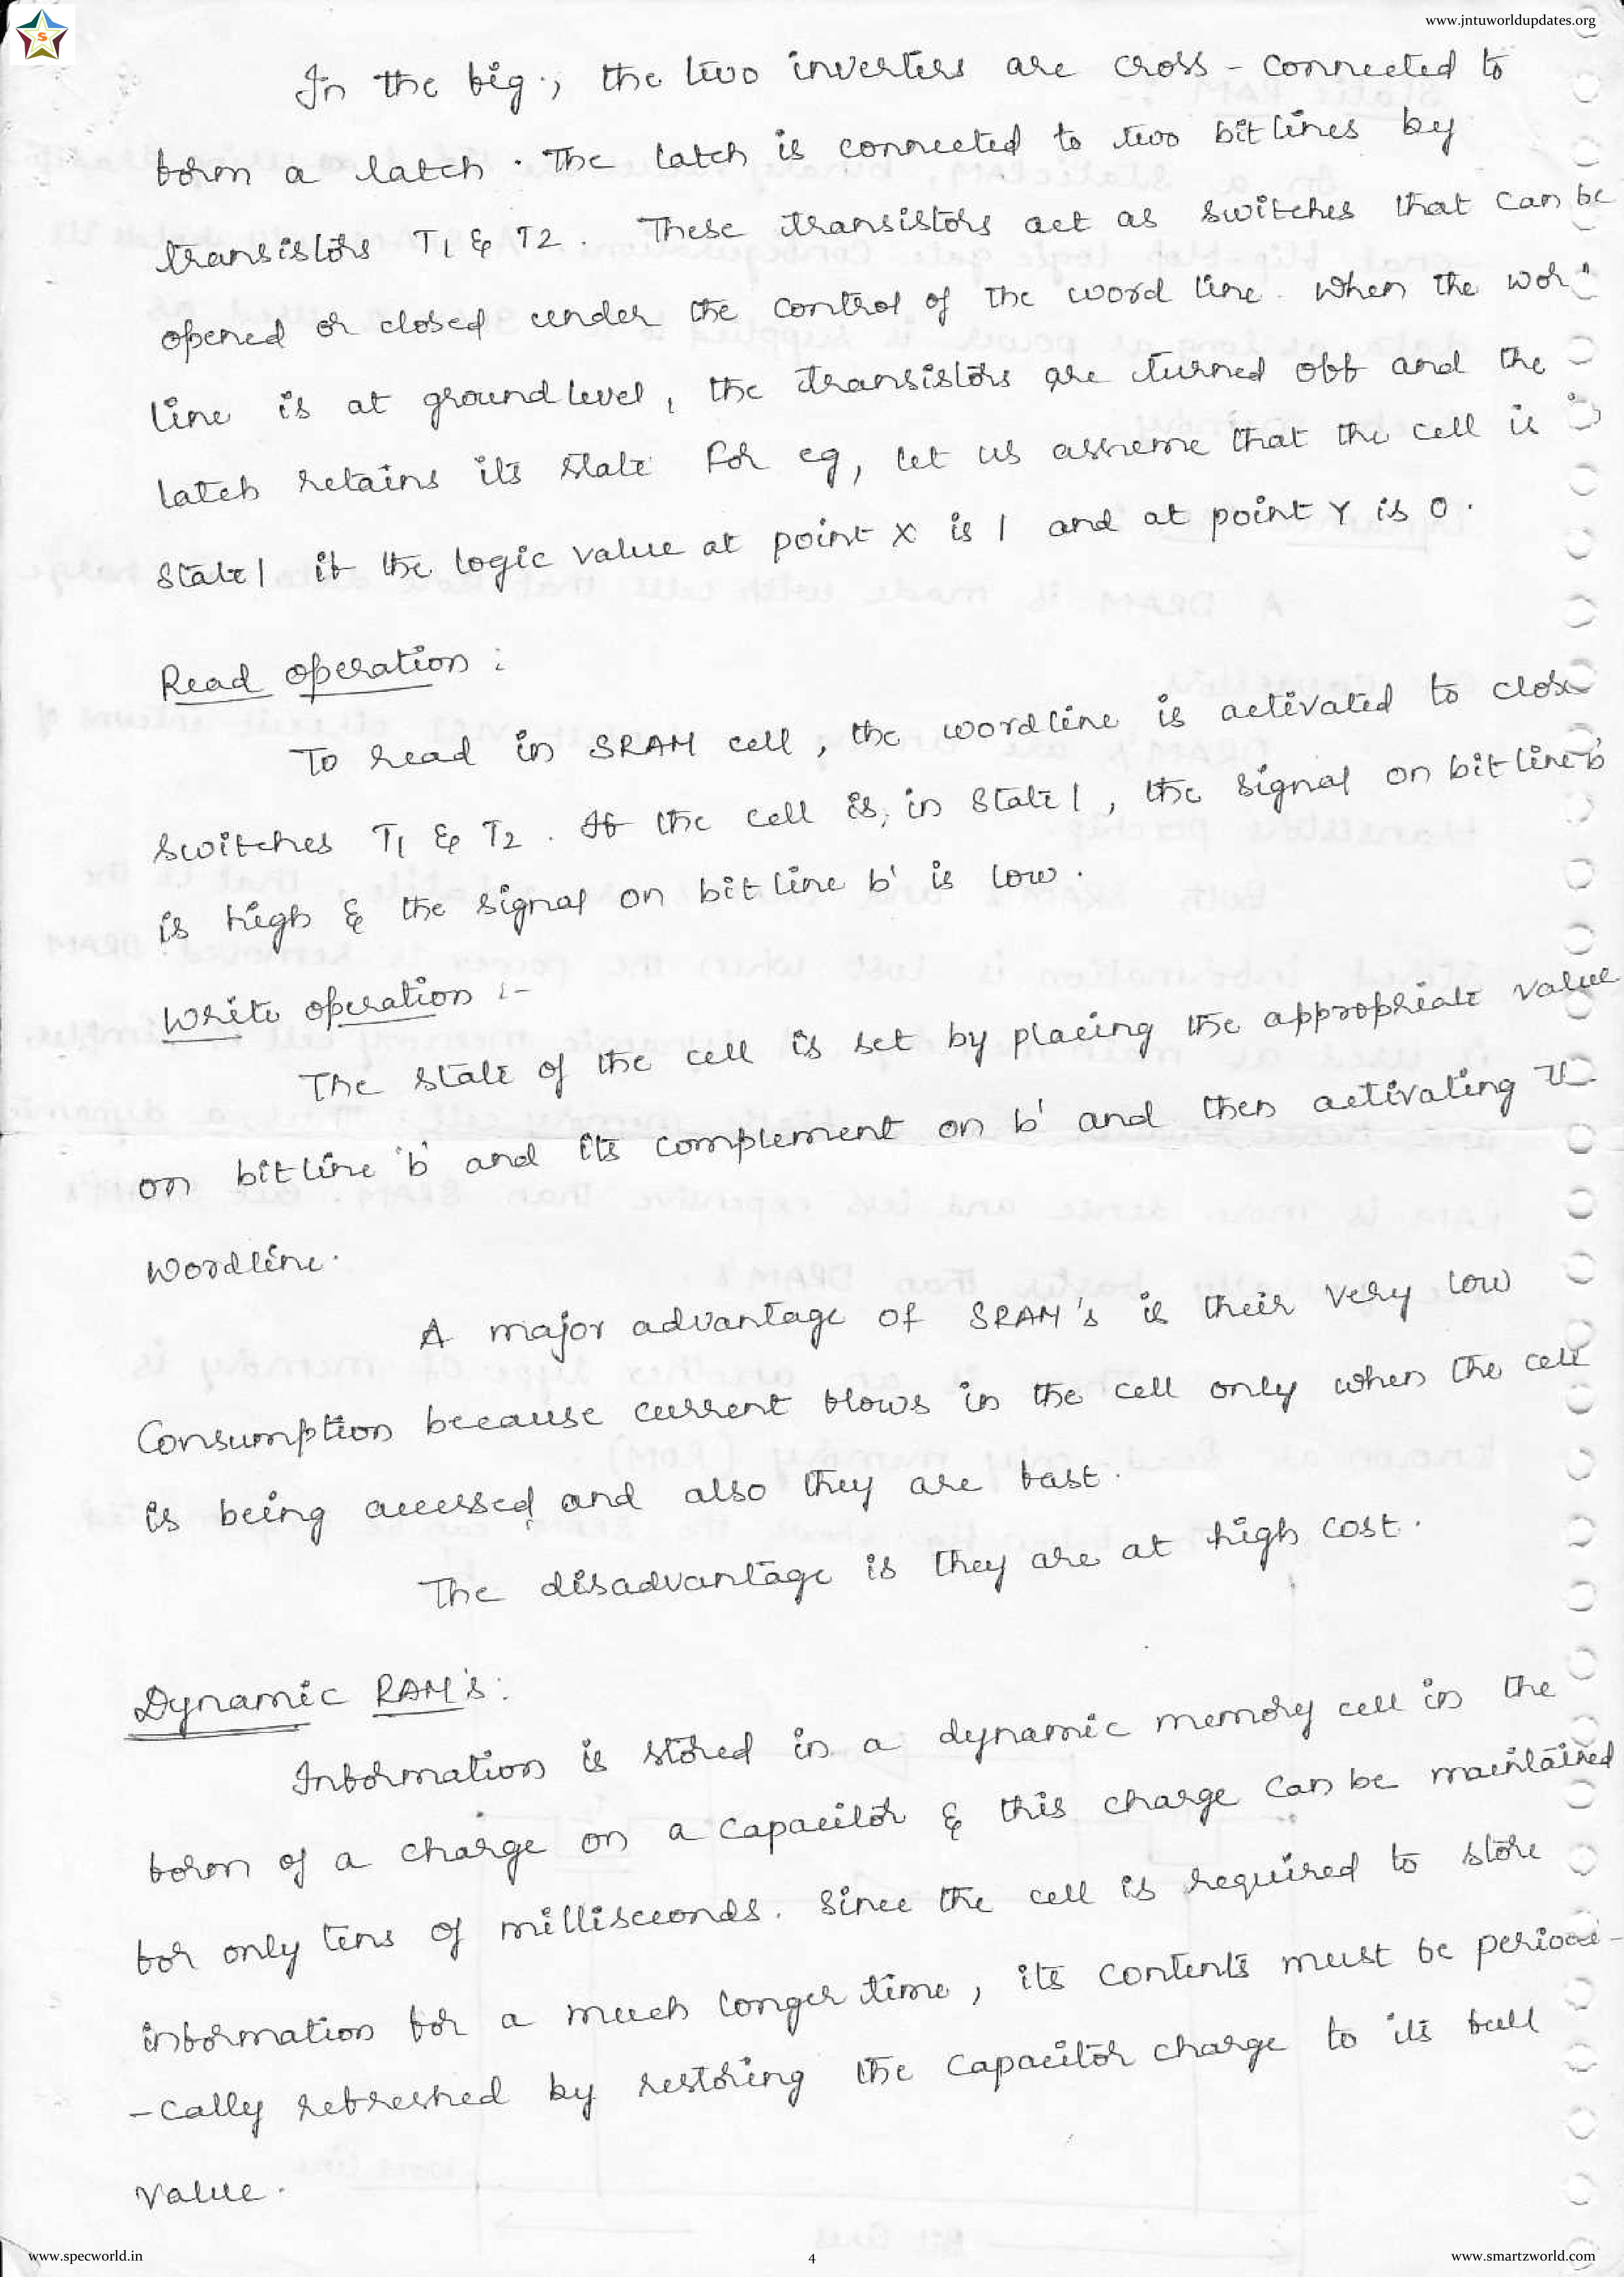 www.jntuworldupdates.org
S
In the fig., the two inverters are cross-connected to
form a latch. The latch is connected to two bit lines by
transistors T1 & T2. These transistors act as switches that can be
opened or closed under the control of the word line. When the word
line is at ground level, the transistors are turned off and the
latch retains its state. For eg, let us assume that the cell is in
state 1 if the logic value at point X is 1 and at point Y is 0.
Read operation:
To read in SRAM cell, the wordline is activated to close
switches T1 & T2. If the cell is, in state 1, the signal on bit line b
is high & the signal on bit line b' is low.
Write operation :-
The state of the cell is set by placing the appropriate value
on bit line 'b' and its complement on b' and then activating the
wordline.
A major advantage of SRAM's is their very low
Consumption because current flows in the cell only when the cell
is being accessed, and also they are fast.
The disadvantage is they are at high cost.
Dynamic RAM's:
Information is stored in a dynamic memory cell in the
form of a charge on a capacitor & this charge can be maintained
for only tens of milliseconds. Since the cell is required to store
information for a much longer time, its contents must be periodi-
-cally refreshed by restoring the capacitor charge to its full
value.
www.specworld.in
4
www.smartzworld.com